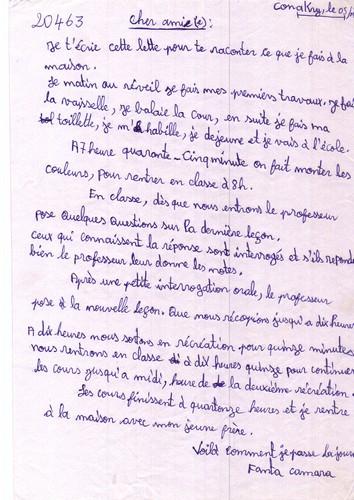 20463
Conakry, le 05/
cher amie(e):
Je t'écrie cette lette pour te raconter ce que je fais à la
maison.
Je matin au réveil je fais mes premiers travaux. je fais
la vaisselle, je balaie la cour, en suite je fais ma
toillette, je m'habille, je dejeune et je vais à l'école.
A 7 heure quarante-Cinq minute on fait monter les
couleurs, Pour rentrer en classe à 8h.
En classe, dès que nous entrons le professeur
pose quelques questions sur la dernière leçon.
ceux qui connaissent la réponse sont interrogés et s'ils reponde
bien le professeur leur donne les notes.
Après une petite interrogation orale, le professeur
pose la nouvelle leçon. Que nous récopions jusqu'a dix heures
A dix heures nous sortons en récréation pour quinze minutes
nous rentrons en classe à dix heures quinze pour continuer
les cours jusqu'a midi, heure de la deuxième récréation.
Les cours finissent à quatorze heures et je rentre
à la maison avec mon jeune frère.
Voilà comment je passe la jour
Fanta camara